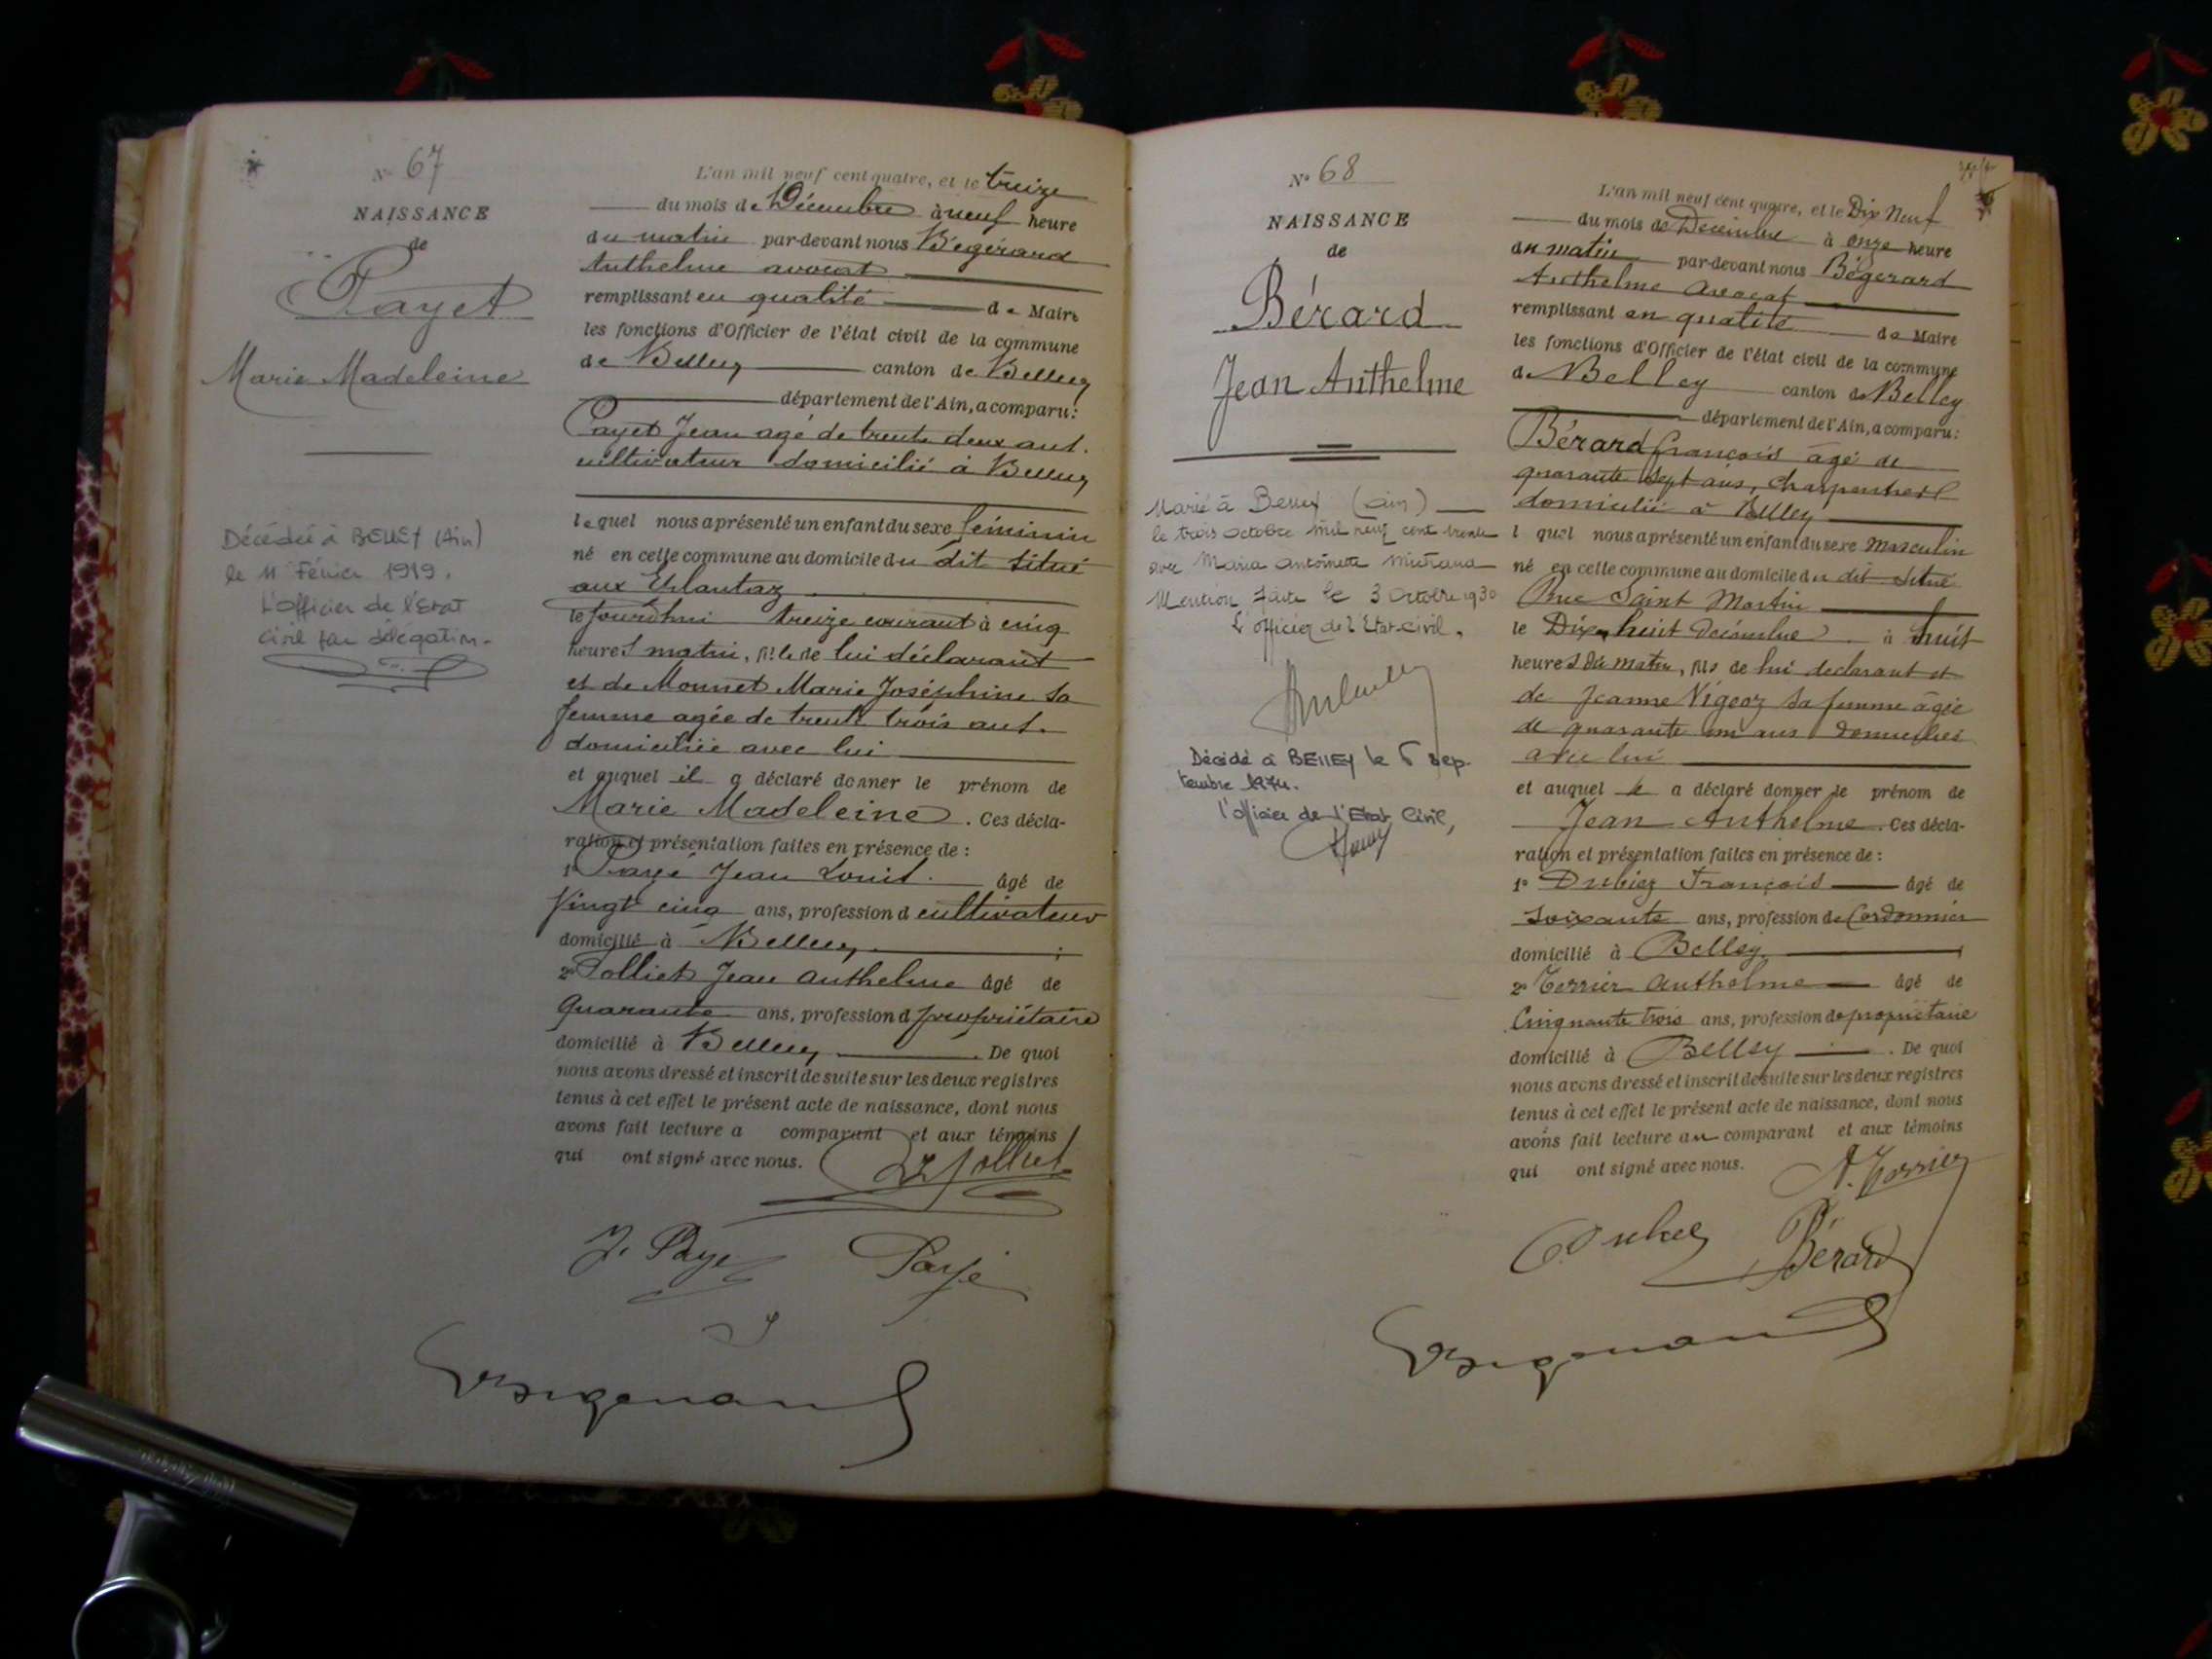 N° 67
NAISSANCE
de
Payet
Marie Madeleine
Décédée à BELLEY (Ain)
le 11 Février 1919.
L'officier de l'Etat
civil par délégation.
L'an mil neuf cent quatre, et le treize
du mois de Décembre à neuf heure
du matin par-devant nous Bégérard
Anthelme avocat
remplissant en qualité de Maire
les fonctions d'Officier de l'état civil de la commune
de Belley canton de Belley
département de l'Ain, a comparu:
Payet Jean agé de trente deux ans.
cultivateur domicilié à Belley
lequel nous a présenté un enfant du sexe féminin
né en cette commune au domicile du dit situé
aux
le jourdhui treize courant à cinq
heures matin, fille de lui déclarant
et de Monnet Marie Joséphine sa
femme agée de trente trois ans.
domiciliée avec lui
et auquel il a déclaré donner le prénom de
Marie Madeleine. Ces décla-
ration et présentation faites en présence de:
1° Payé Jean Louis. âgé de
Vingt cinq ans, profession d cultivateur
domicilié à Belley;
2° Polliet Jean Anthelme âgé de
Quarante ans, profession d propriétaire
domicilié à Belley. De quoi
nous avons dressé et inscrit de suite sur les deux registres
tenus à cet effet le présent acte de naissance, dont nous
avons fait lecture a comparant et aux témoins
qui ont signé avec nous. Polliet
J. Paye Payé
N° 68
NAISSANCE
de
Bérard
Jean Anthelme
Marié à Belley (Ain)
le trois octobre mil neuf cent trente
avec Maria Antoinette
Mention faite le 3 Octobre 1930
L'officier de l'Etat-civil,
Décédé à BELLEY le 6 sep-
tembre 1974.
l'officier de l'Etat Civil,
L'an mil neuf cent quatre, et le Dix Neuf
du mois de Décembre à onze heure
du matin par-devant nous Bégérard
Anthelme Avocat
remplissant en qualité de Maire
les fonctions d'Officier de l'état civil de la commune
de Belley canton de Belley
département de l'Ain, a comparu:
Bérard François âgé de
quarante sept ans, charpentier
domicilié à Belley
l quel nous a présenté un enfant du sexe masculin
né en cette commune au domicile du dit situé
Rue Saint Martin
le Dix huit Décembre à huit
heures du matin, fils de lui déclarant et
de Jeanne Vigeoz sa femme âgée
de quarante un ans domiciliés
avec lui
et auquel il a déclaré donner le prénom de
Jean Anthelme. Ces décla-
ration et présentation faites en présence de:
1° Dubiez François âgé de
soixante ans, profession de Cordonnier
domicilié à Belley;
2° Terrier Anthelme âgé de
Cinquante trois ans, profession de propriétaire
domicilié à Belley. De quoi
nous avons dressé et inscrit de suite sur les deux registres
tenus à cet effet le présent acte de naissance, dont nous
avons fait lecture au comparant et aux témoins
qui ont signé avec nous. A. Terrier
Bérard